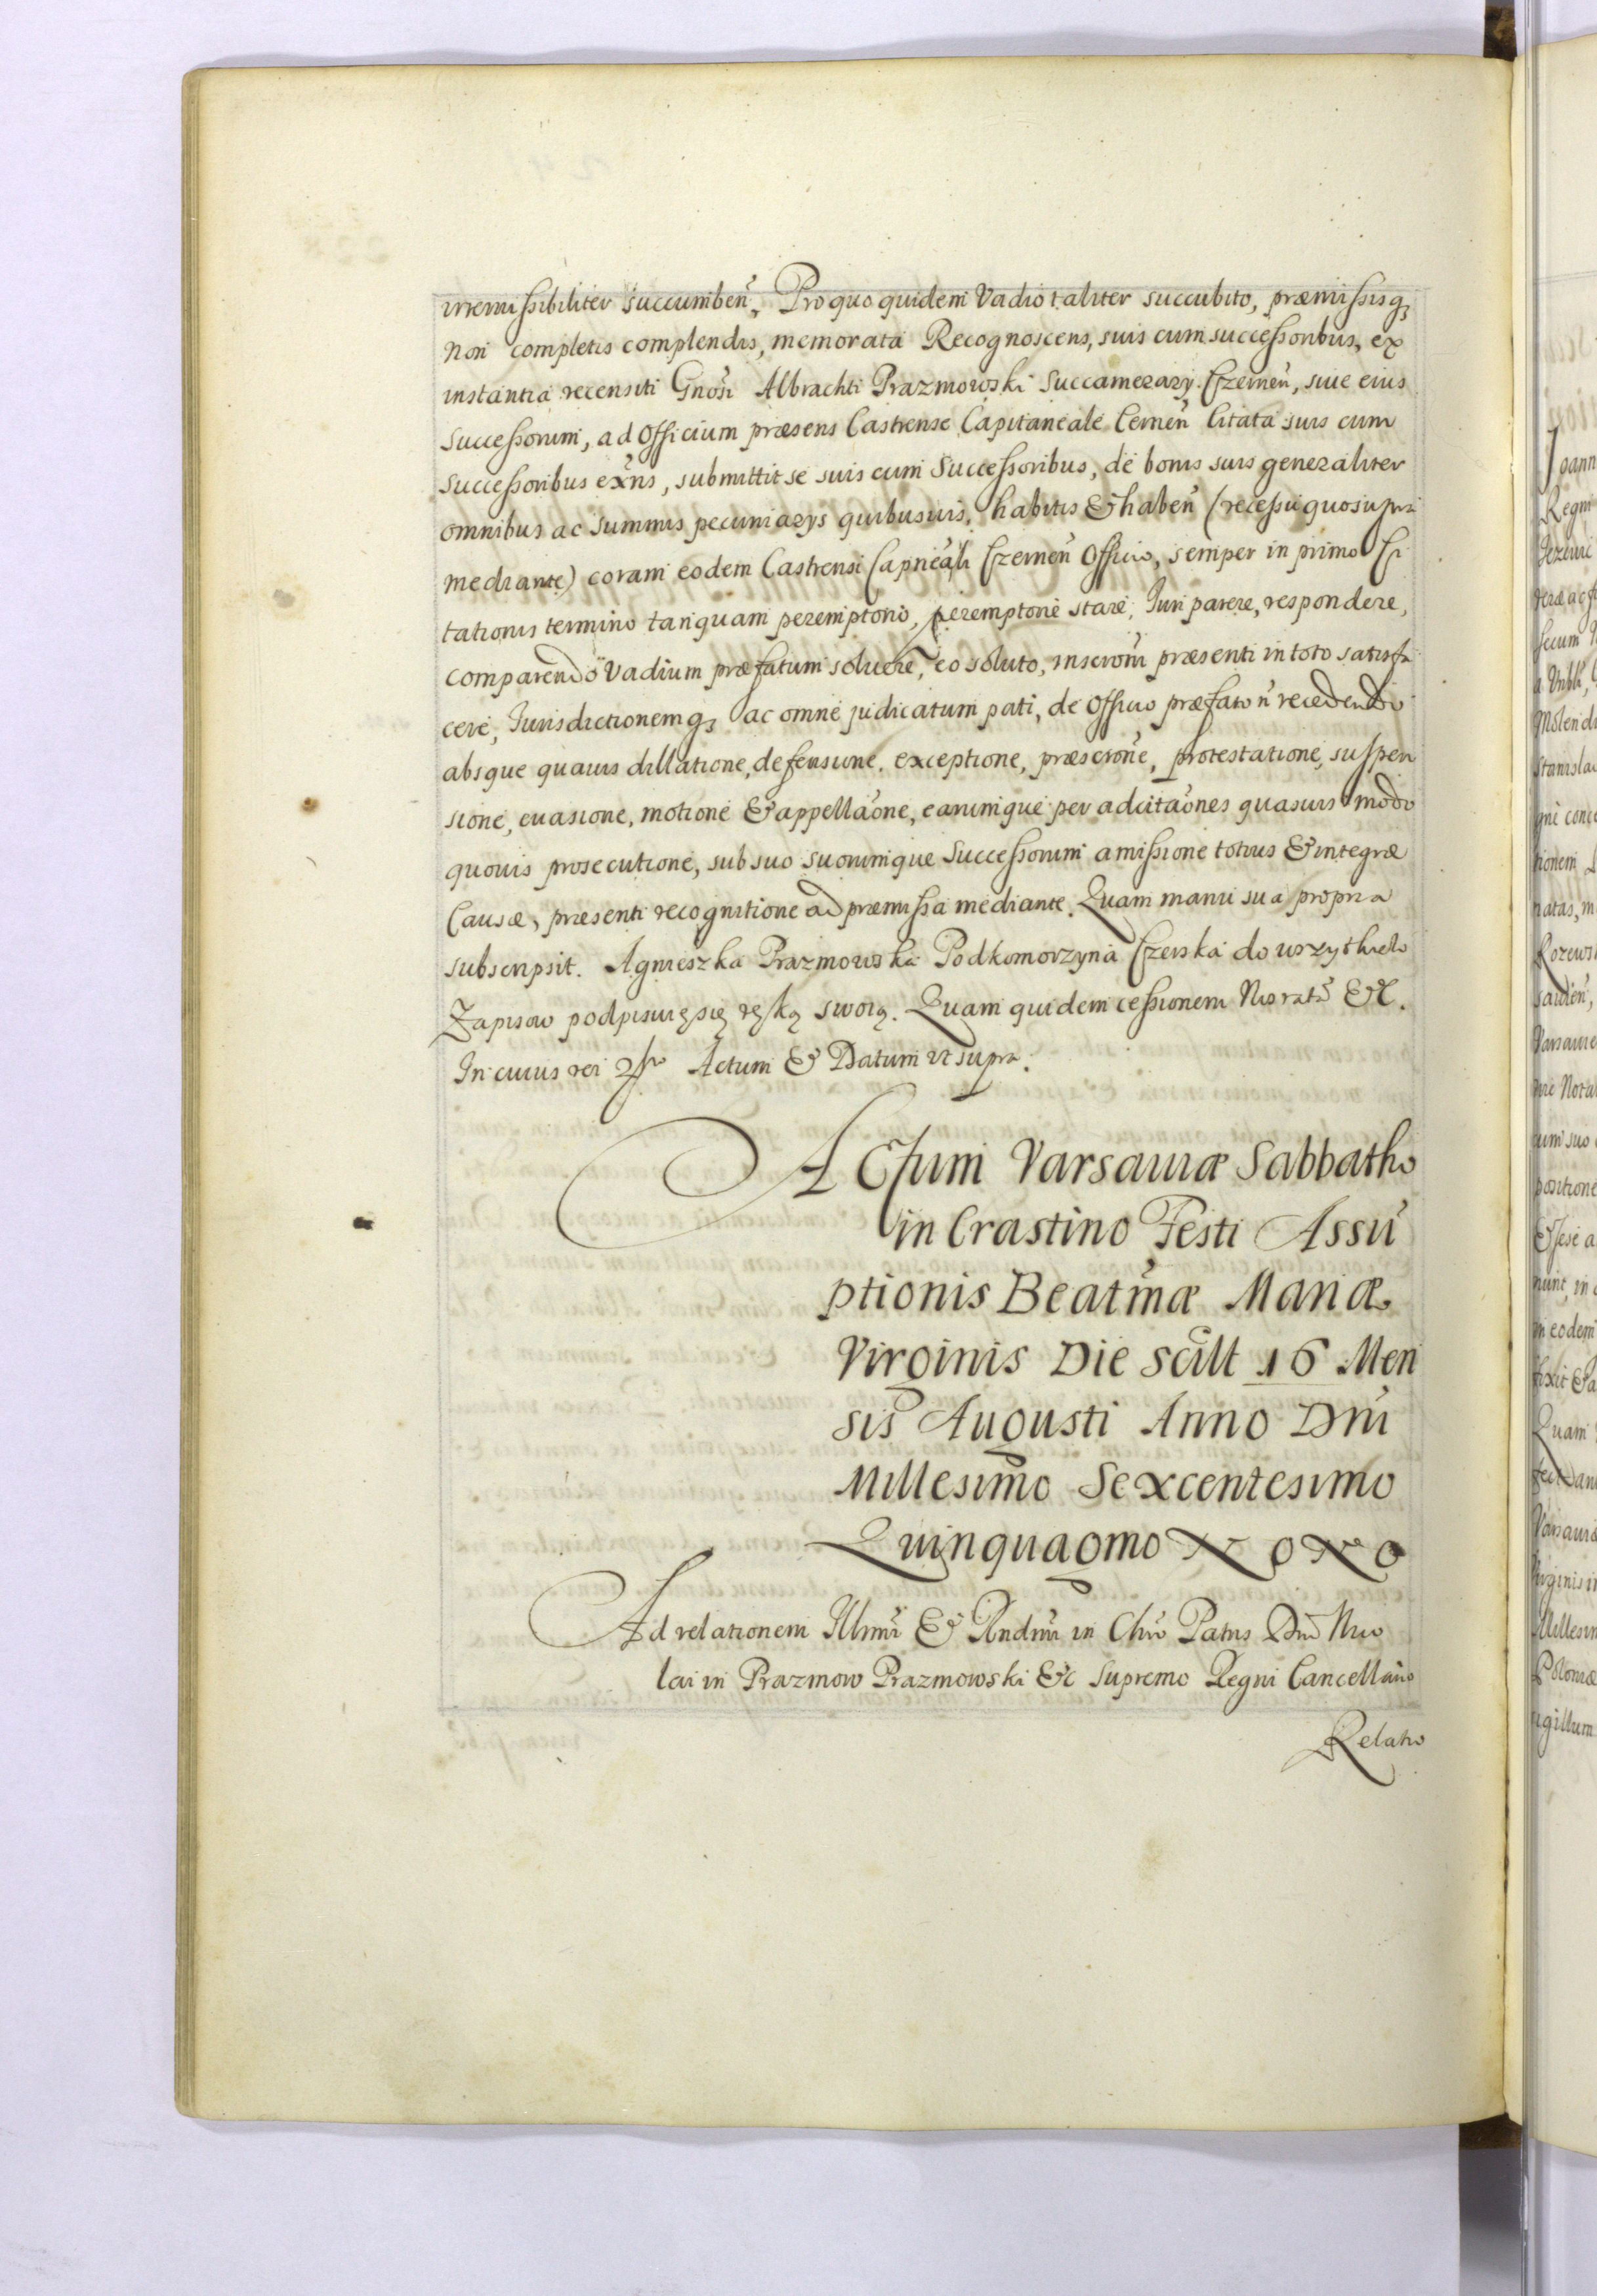 irremissibiliter succumbeñ, Pro quo quidem Vadio taliter succubito, præmissisq3
non completis complendis, memorata Recognoscens, suis cum successoribus, ex
instantia recensiti Gnosi Albrachti Prazmowski Succamerary Czerneñ, siue eius
successorum, ad Officium præsens Castrense Capitaneale Cerneñ Citata suis cum
successoribus exñs, submittit se suis cum Successoribus, de bonis suis generaliter
omnibus ac summis pecuniarys quibusuis, habitis & habeñ (recessu quo supra
mediante) coram eodem Castrensi Capneali Czerneñ Officio, semper in primo Ci
tationis termino tanquam peremptorio, peremptorie stare, Juri parere, respondere,
comparendo Vadium præfatum soluere, eo soluto, inscroni præsenti in toto satisfa
cere, Jurisdictionemq3 ac omne judicatum pati, de Officio præfato ñ recedendo
absque quauis dillatione, defensione, exceptione, præscrone, protestatione, suspen
sione, euasione, motione & appellaõne, earumque per adcitaõnes quasuis modo
quouis prosecutione, sub suo suorumque Successorum amissione totius & integræ
Causæ, præsenti recognitione ad præmissa mediante. Quam manu sua propria
subscripsit. Agnieszka Prazmowska Podkomorzyna Czerska do wszythkich
Zapisow podpisuię się ręką swoią. Quam quidem cessionem &c.
In cuius rei Actum & Datum ut supra.
Actum Varsauiæ Sabbatho
in Crastino Festi Assu
ptionis Beatmæ Mariæ
Virginis Die scilt 16 Men
sis Augusti Anno Dni
Millesimo Sexcentesimo
Quinquagmo Nono
Ad relationem Illmi & Rndmi in Chro Patris Dni Nico
lai in Prazmow Prazmowski &c Supremo Regni Cancellario
Relatio